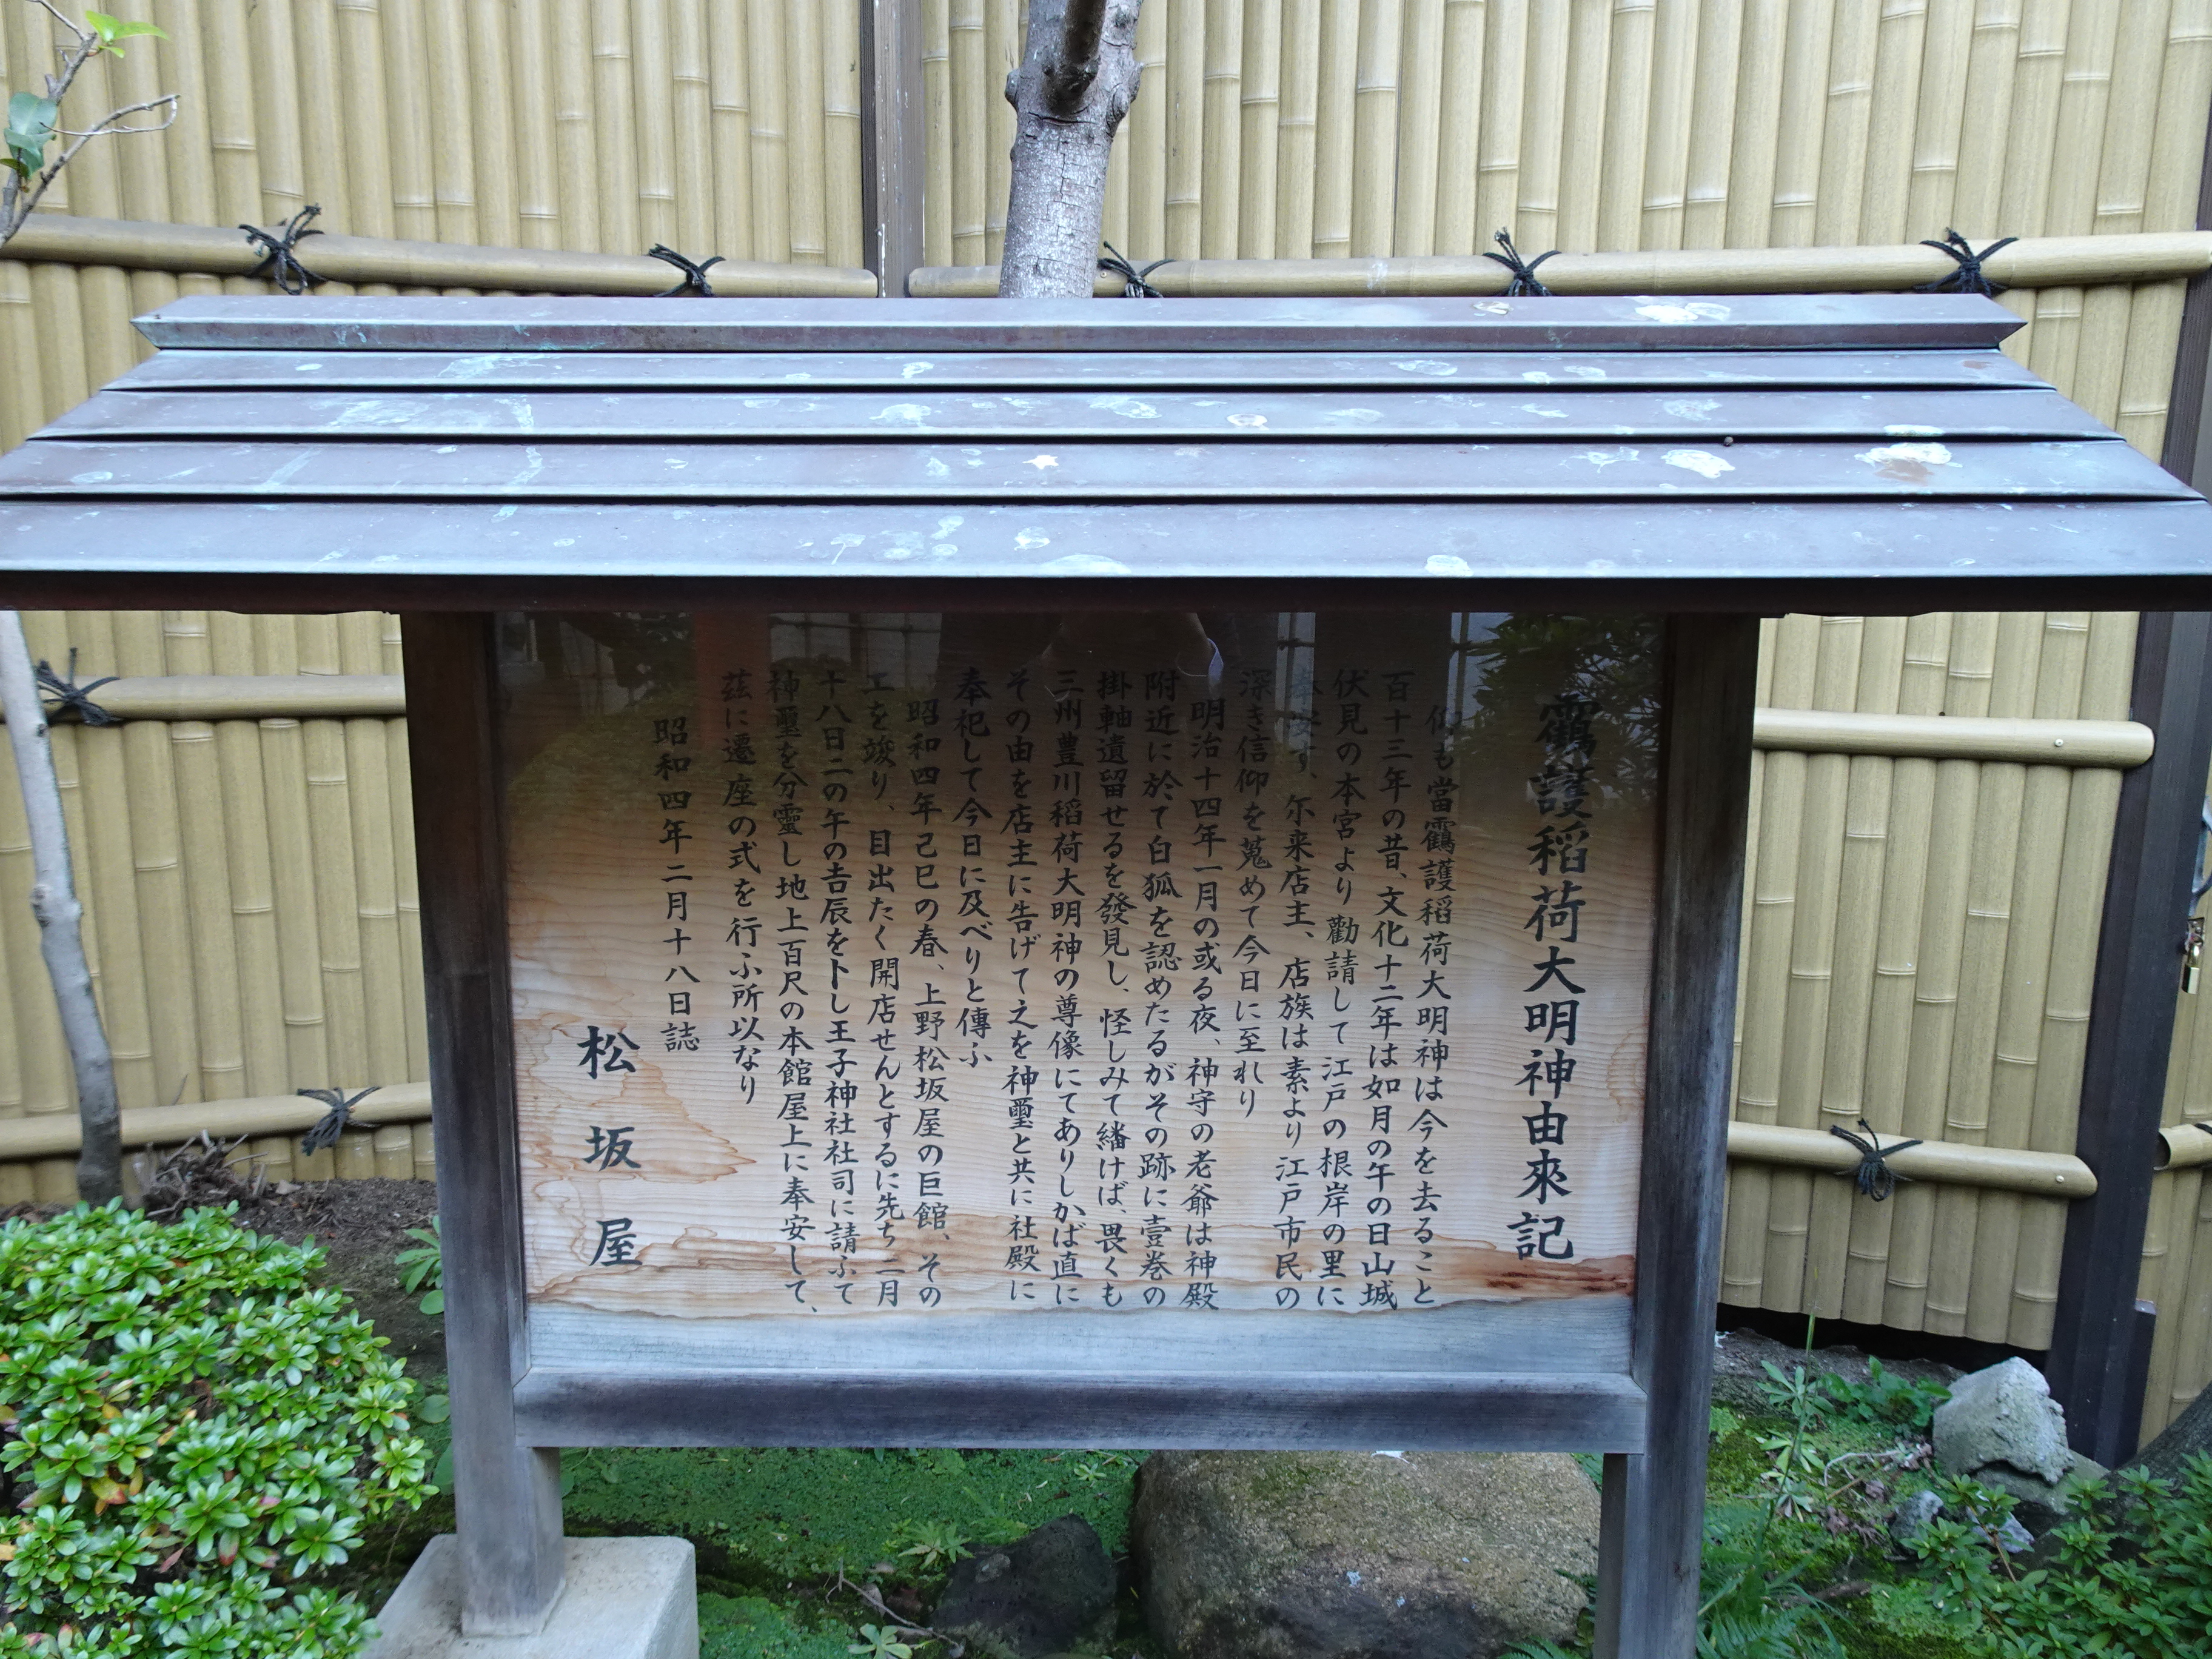 靍護稲荷大明神由來記
も當靍護稲荷大明神は今を去ること
百十三年の昔、文化十二年は如月の午の日山城
伏見の本宮より勸請して江戸の根岸の里に
安す、尓来店主、店族は素より江戸市民の
深き信仰を蒐めて今日に至れり
明治十四年一月の或る夜、神守の老爺は神殿
附近に於て白狐を認めたるがその跡に壹巻の
掛軸遺留せるを發見し、怪しみて繙けば、畏くも
三州豊川稲荷大明神の尊像にてありしかば直に
その由を店主に告げて之を神璽と共に社殿に
奉祀して今日に及べりと傳ふ
昭和四年己巳の春、上野松坂屋の巨館、その
工を竣り、目出たく開店せんとするに先ち二月
十八日二の午の吉辰を卜し王子神社社司に請ふて
神璽を分靈し地上百尺の本館屋上に奉安して、
茲に遷座の式を行ふ所以なり
昭和四年二月十八日誌
松坂屋